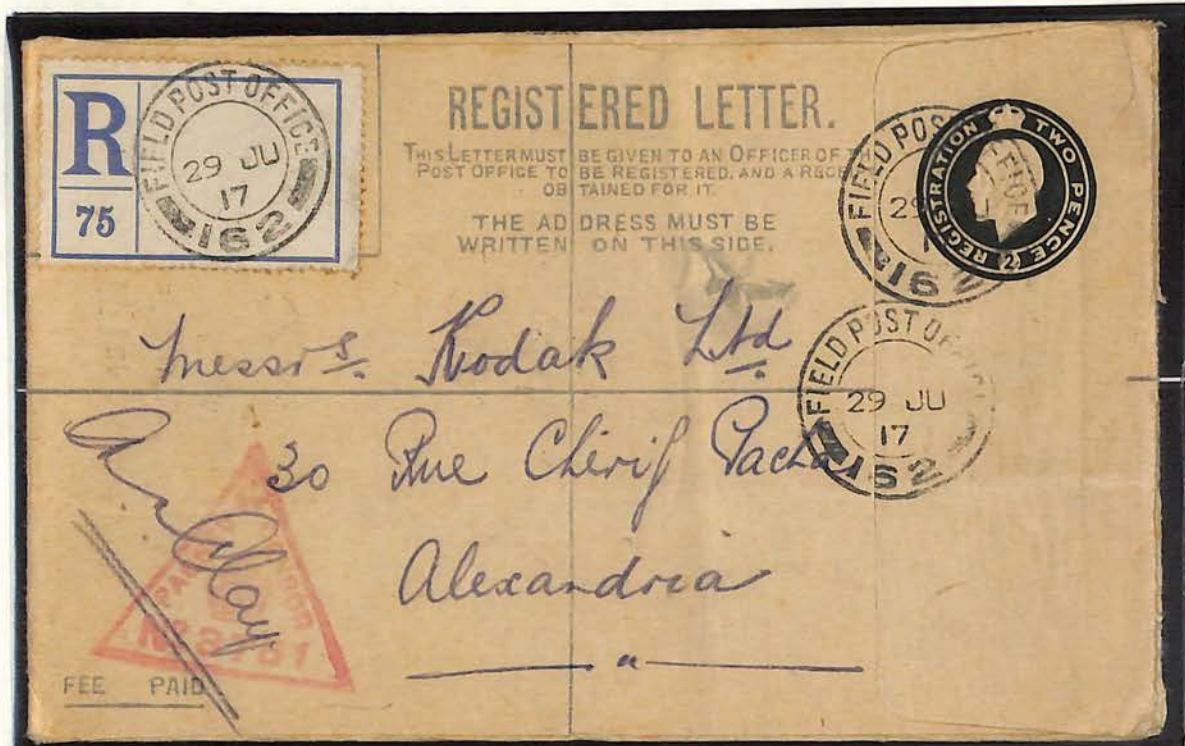 R
75
FIELD POST OFFICE
29 JU
17
162
REGISTERED LETTER.
THIS LETTER MUST BE GIVEN TO AN OFFICER OF
POST OFFICE TO BE REGISTERED, AND A RECE
OBTAINED FOR IT.
THE ADDRESS MUST BE
WRITTEN ON THIS SIDE.
FIELD POS
29
1
162
REGISTRATION TWO PENCE
2
Messrs. Kodak Ltd.
FIELD POST OFFICE
29 JU
17
162
30 Rue Chérif Pacha
Alexandria
FEE PAID